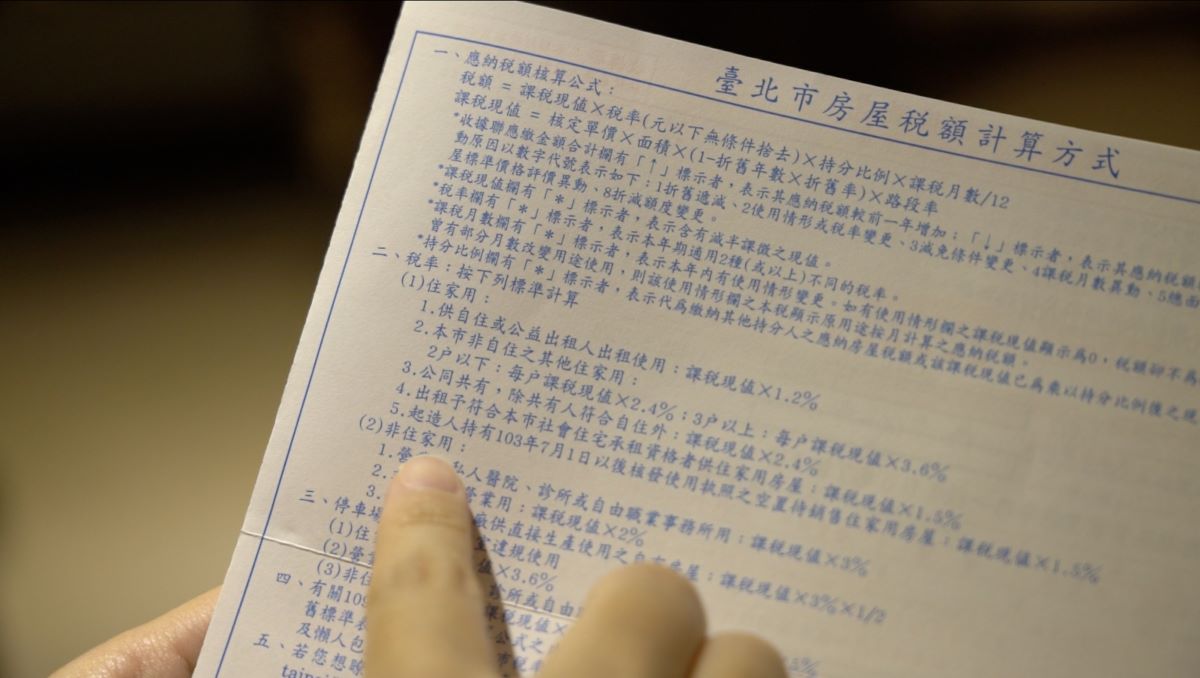 臺北市房屋稅額計算方式
一、應納稅額核算公式：
稅額 = 課稅現值×稅率(元以下無條件捨去)×持分比例×課稅月數/12
課稅現值 = 核定單價×面積×(1-折舊年數×折舊率)×路段率
*收據聯應繳金額合計欄有「↑」標示者，表示其應納稅額較前一年增加；「↓」標示者，表示其應納稅額
動原因以數字代號表示如下：1折舊遞減、2使用情形或稅率變更、3減免條件變更、4課稅月數異動、5
屋標準價格評價異動、8折減額度變更。
*課稅現值欄有「*」標示者，表示含有減半課徵之現值。
*稅率欄有「*」標示者，表示本年期適用2種(或以上)不同的稅率。
*課稅月數欄有「*」標示者，表示本年內有使用情形變更。如有使用情形欄之課稅現值顯示為0，稅額卻不為
曾有部分月數改變用途使用，則該使用情形欄之本稅顯示原用途按月計算之應納稅額。
*持分比例欄有「*」標示者，表示代為繳納其他持分人之應納房屋稅額或該課稅現值已為乘以持分比例後之現
二、稅率：按下列標準計算
(1)住家用：
1.供自住或公益出租人出租使用：課稅現值×1.2%
2.本市非自住之其他住家用：
2戶以下：每戶課稅現值×2.4%；3戶以上：每戶課稅現值×3.6%
3.公同共有，除共有人符合自住外：課稅現值×2.4%
4.出租予符合本市社會住宅承租資格者供住家用房屋：課稅現值×1.5%
5.起造人持有103年7月1日以後核發使用執照之空置待銷售住家用房屋：課稅現值×1.5%
(2)非住家用：
1.營 私人醫院、診所或自由職業事務所用：課稅現值×3%
2. 營業用：課稅現值×2%
3. 廠供直接生產使用之自有房屋：課稅現值×3%×1/2
三、停車場 違規使用
(1)住 值×3.6%
(2)營 診所或自由
(3)非住 課稅現值×
四、有關109 公式之
舊標準表 稅率
及懶人包
五、若您想瞭
taipei